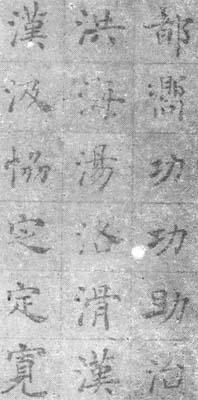 部澗功功助治
洪海湯洛滑漢
漢汲協定定寛